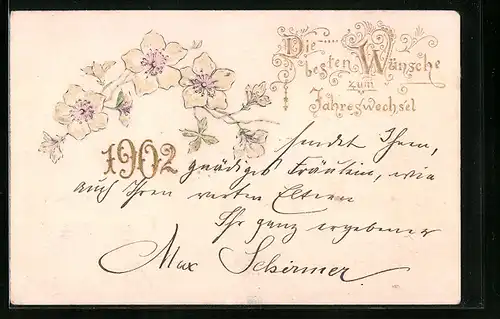 Die
besten Wünsche
zum
Jahreswechsel
1902
sendet Ihnen,
gnädiges Fräulein, wie
auch Ihren werten Eltern
Ihr ganz ergebener
Max Schirmer